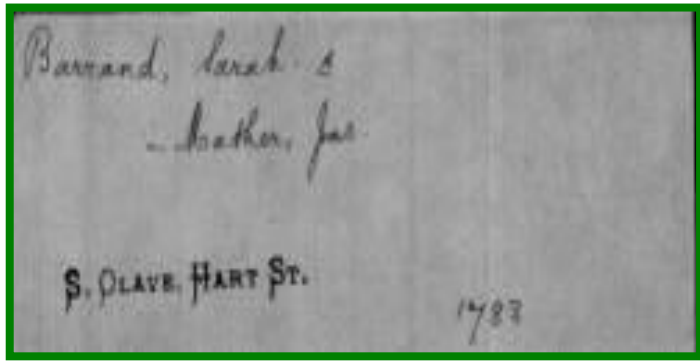 Barrand, Sarah &
Mather, Jas
S. OLAVE, HART ST.
1783